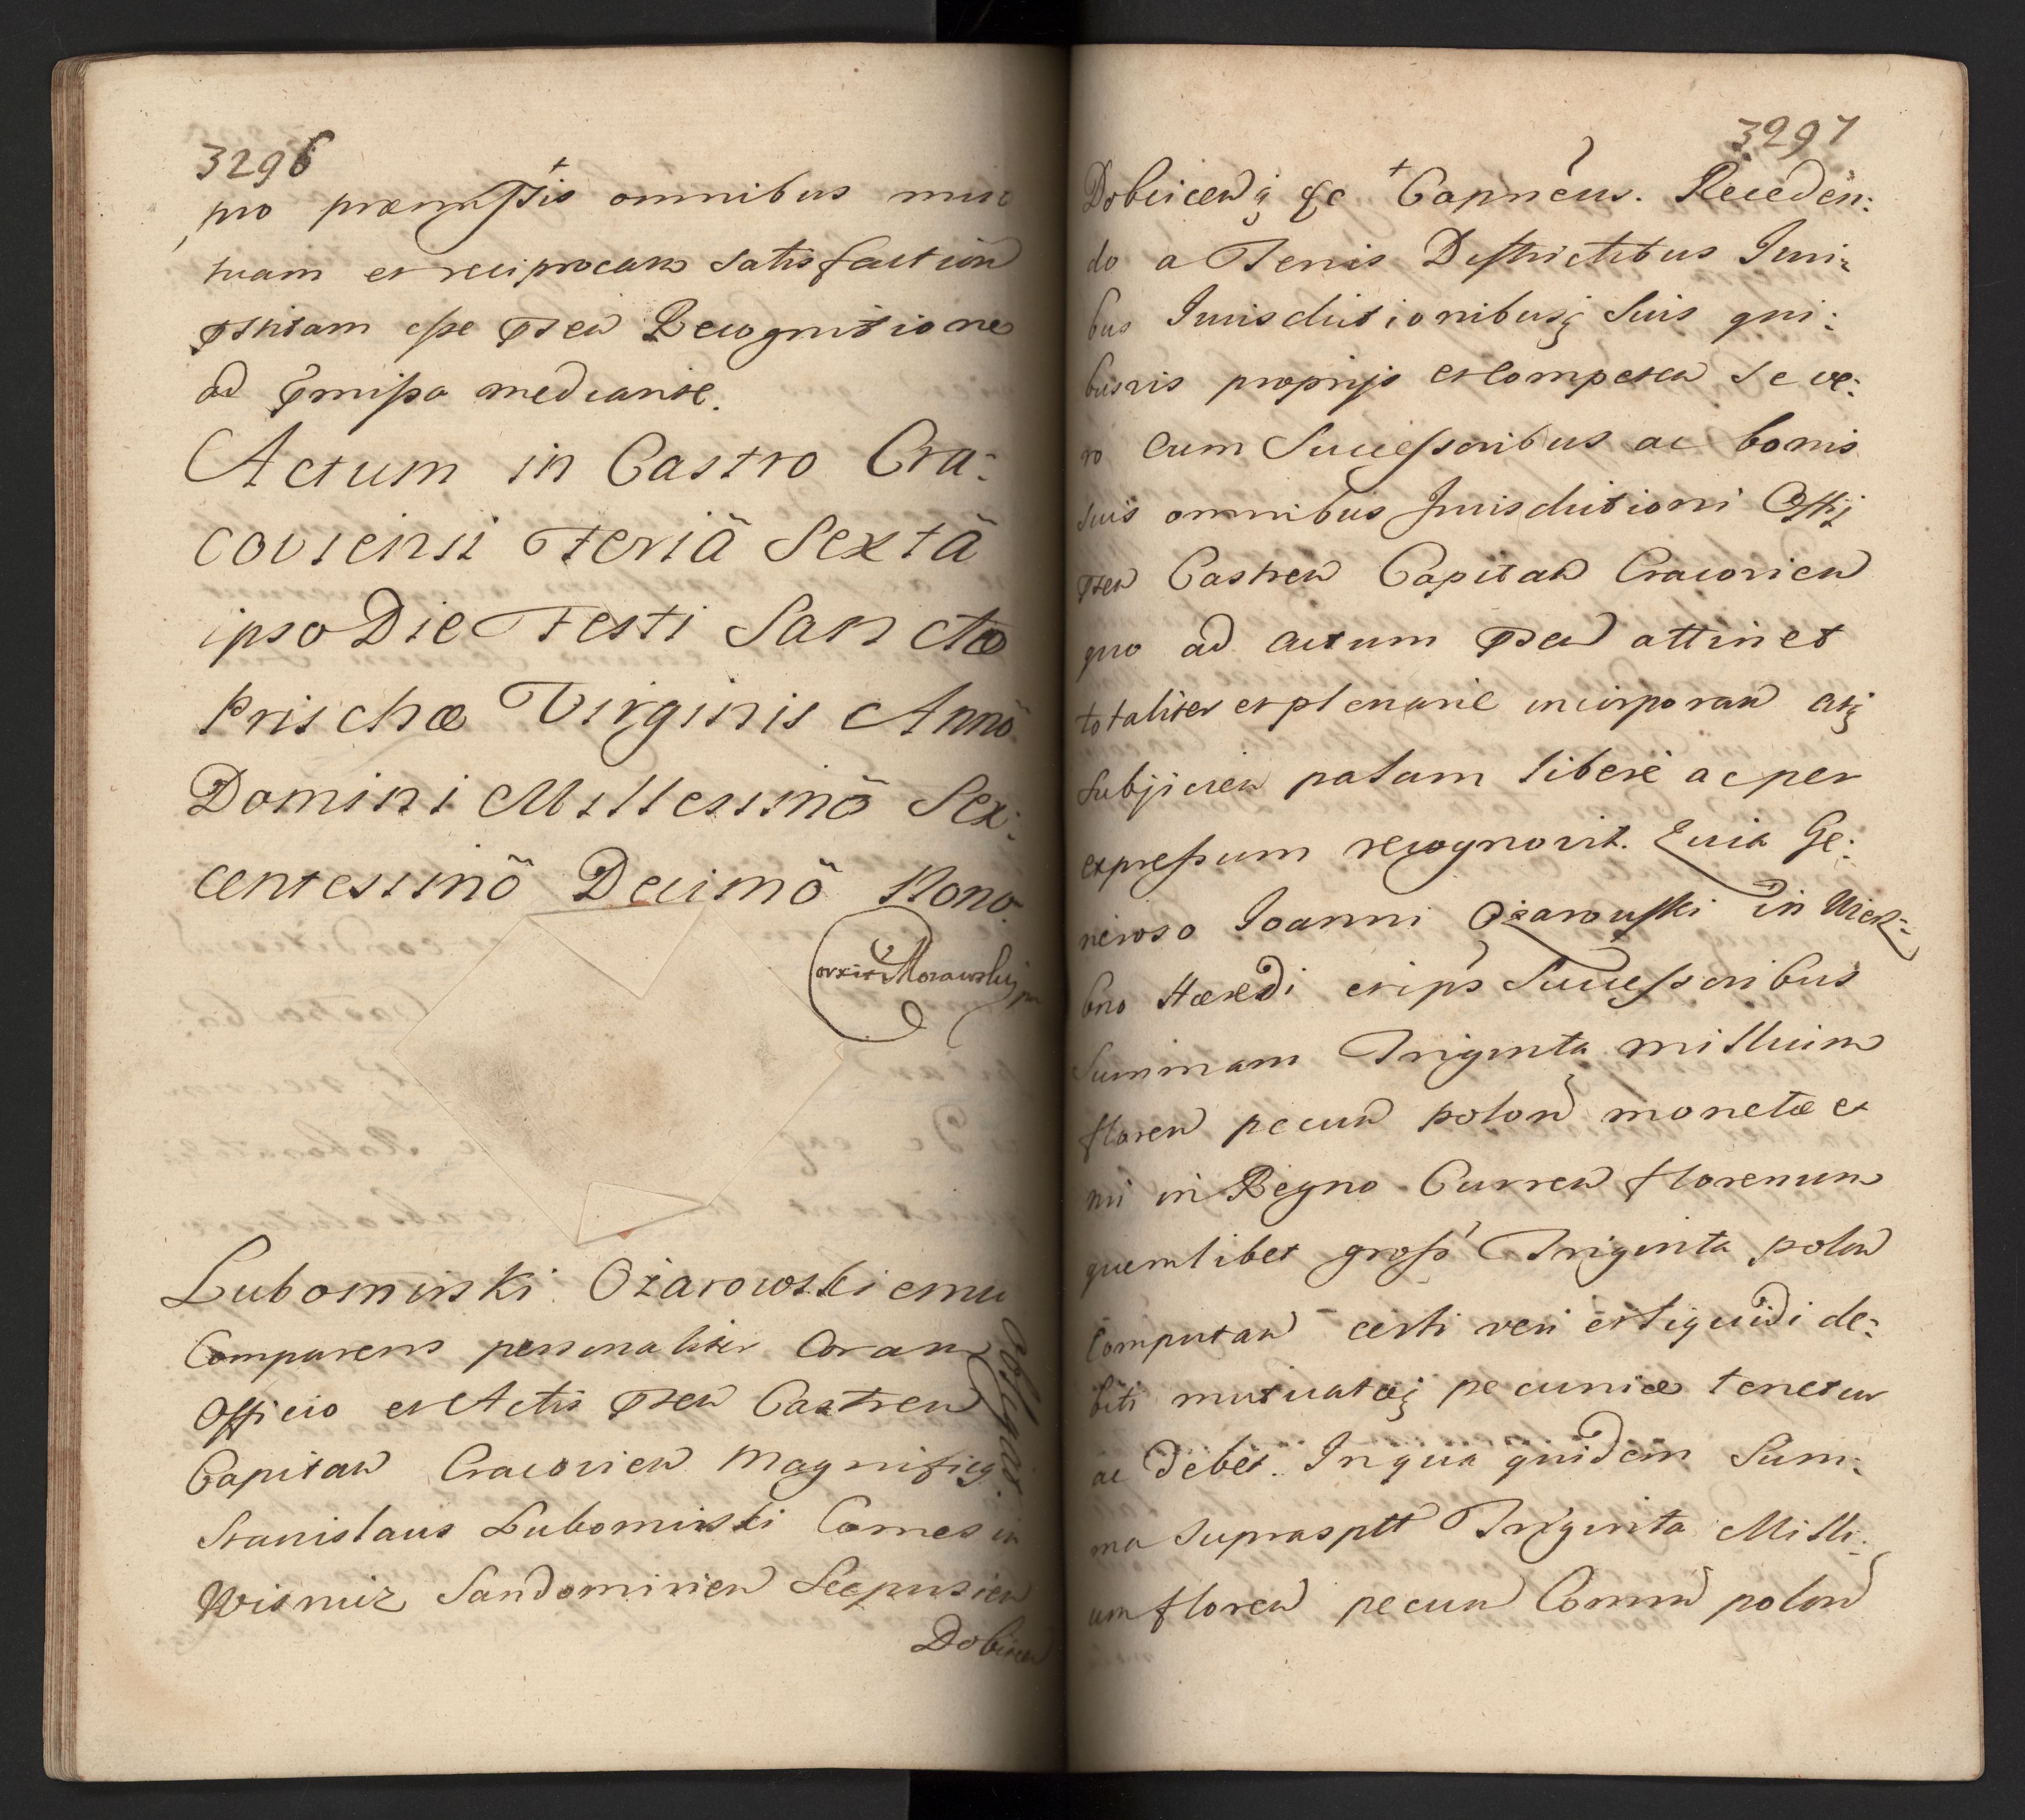 3296
pro præmissis omnibus mu
tuam et reciprocam satisfaction
pntam esse pnten Recognitione
ad pmissa mediante.
Actum in Castro Cra:
coviensi Feriâ Sextâ
ipso Die Festi Sanctæ
Prischæ Virginis Annô
Domini Millessimô Sex:
centessimô Decimô Nono.
Correxit Morawskij
Lubomirski Ożarowskiemu
Obligat
Comparens personaliter Coram
Officio et Actis pnten Castren
Capitan Cracovien Magnificq
Stanislaus Lubomirski Comes in
Wisnicz Sandomirien Scepusien
Dobicen
3297
Dobcicenq &c Capneus. Receden:
do a Terris Districtibus Juri:
bus Jurisdictionibusq suis qui:
busvis proprijs et competen se ve:
ro cum Successoribus ac bonis
suis omnibus Jurisdictioni Offij
pnten Castren Capitan Cracovien
quo ad actum pnten attinet
totaliter et plenarie incorporan atq
subjicien palam libere ac per
expressum recognovit. Quia Ge:
neroso Joanni Ożarowski in Wierz:
bno Hæredi et ips Successoribus
Summam Triginta millium
floren pecun polon monetæ et
nri in Regno Curren florenum
quemlibet gross Triginta polon
Computan certi veri et liquidi de:
biti mutuatæq pecuniæ tenetur
ac debet. In qua quidem Sum:
ma suprasptt Triginta Milli:
um floren pecun Comun polon